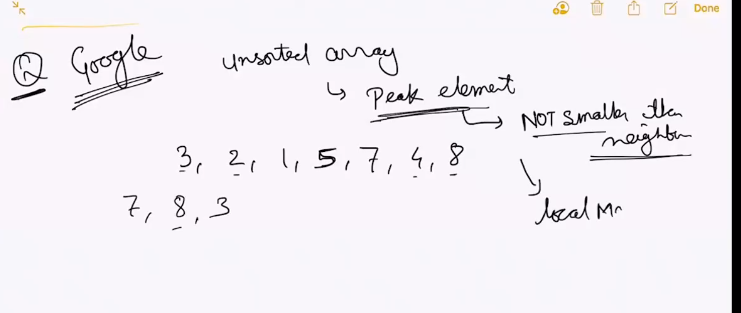 Done
Q Google unsorted array
↳ Peak element
→ NOT smaller than
neighbor
3, 2, 1, 5, 7, 4, 8
7, 8, 3
local Ma